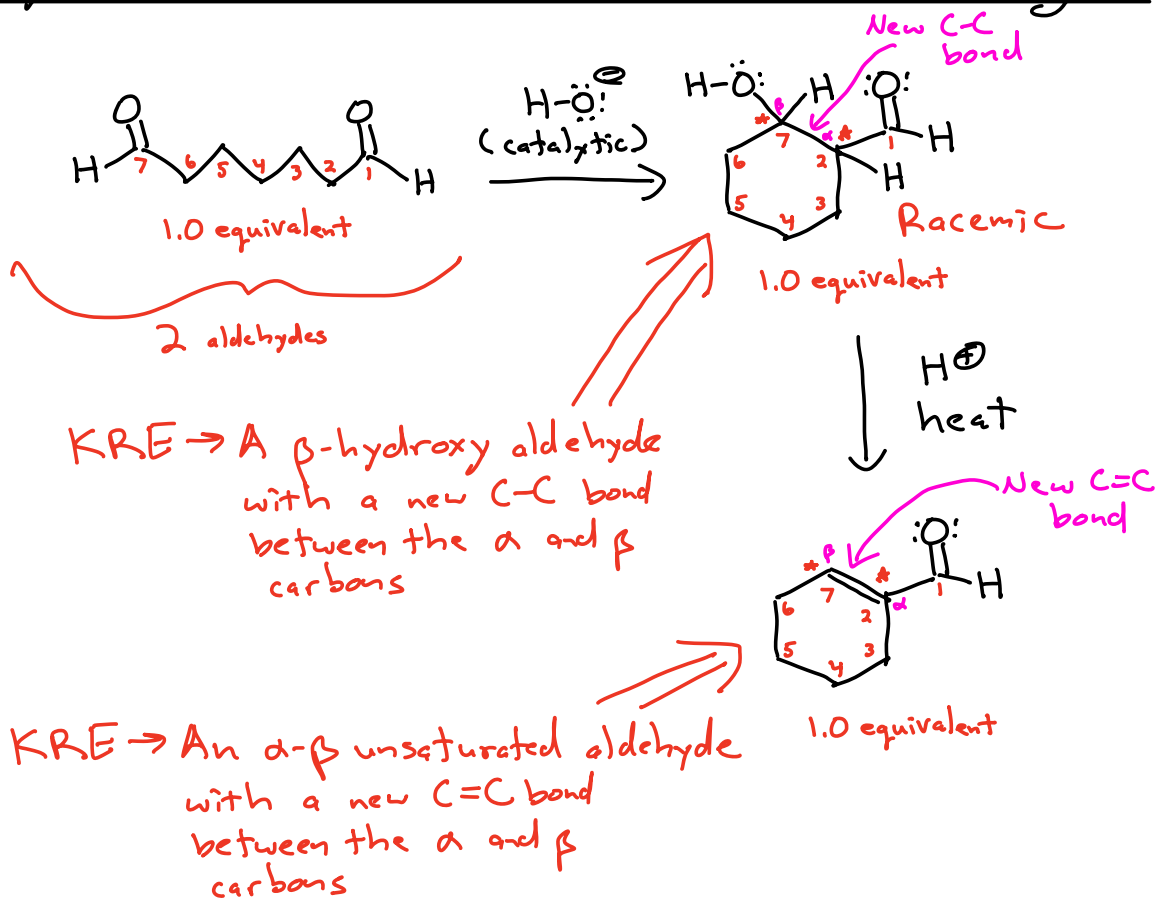 New C-C
bond
O
H
7
6
5
4
3
2
1
O
H
1.0 equivalent
2 aldehydes
H-O:⊖
(catalytic)
H-O:
β
H
:O:
*
7
α
*
2
1
H
H
6
5
4
3
Racemic
1.0 equivalent
H⊕
heat
KRE → A β-hydroxy aldehyde
with a new C-C bond
between the α and β
carbons
New C=C
bond
:O:
β
*
7
*
2
α
1
H
6
5
4
3
1.0 equivalent
KRE → An α-β unsaturated aldehyde
with a new C=C bond
between the α and β
carbons